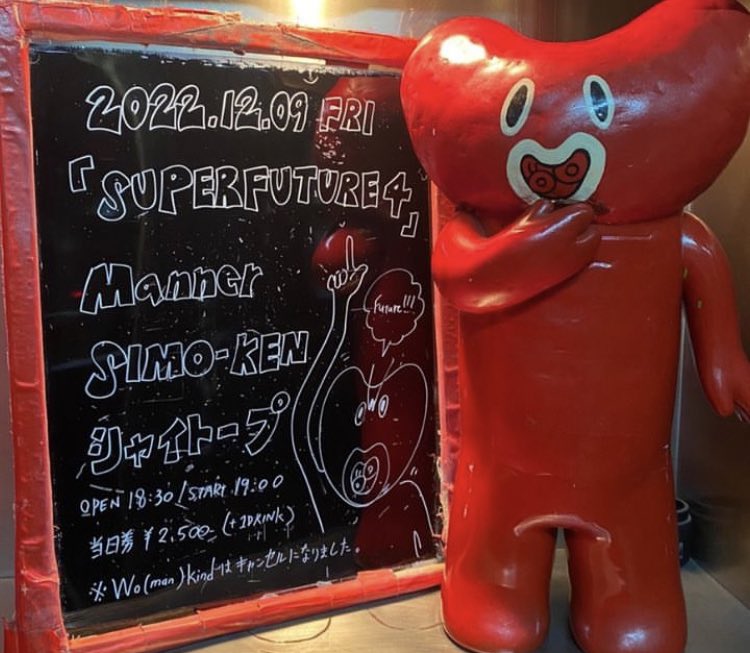 2022.12.09 FRI
「SUPERFUTURE4」
Manner
SIMO-KEN
シャイトープ
future!!!
OPEN 18:30 / START 19:00
当日券 ¥2,500- (+1DRINK)
※ Wo(man)kindはキャンセルになりました。